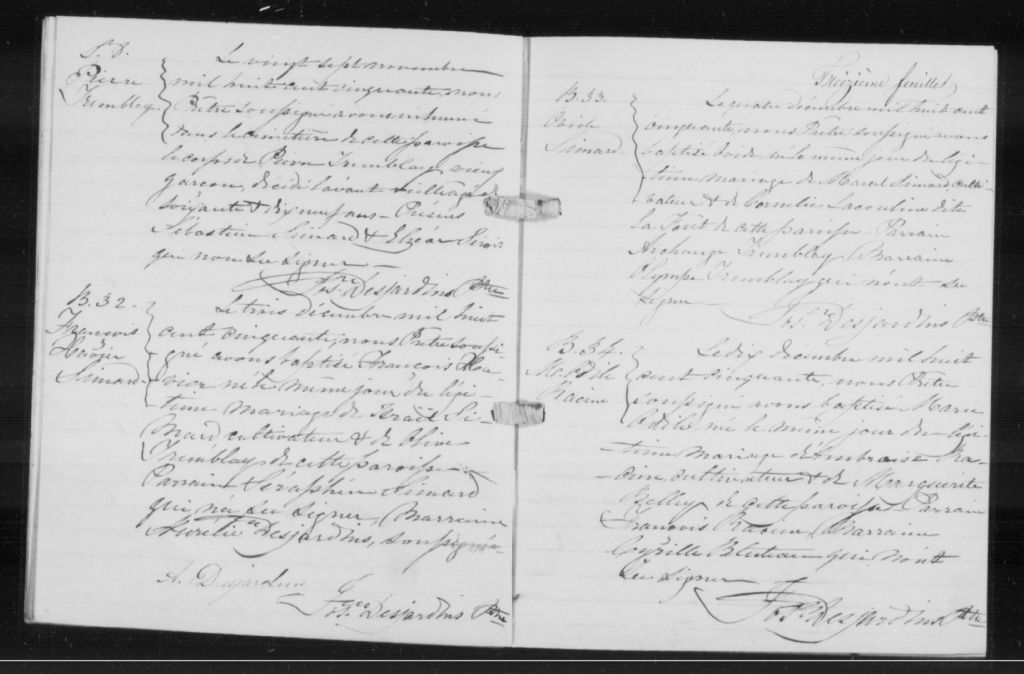 S. D.
Pierre
Tremblay
Le vingt sept novembre
mil huit cent cinquante, nous
Prêtre soussigné avons inhumé
dans le cimetière de cette paroisse
le corps de Pierre Tremblay, vieux
garçon, décédé l'avant veille agé de
soixante & dix neuf ans - Présens
Sébastien Simard & Elzéar Sirois
qui n'ont su signer
Jos. Desjardins Ptre
B. 32.
François
Xavier
Simard
Le trois décembre mil huit
cent cinquante, nous Prêtre soussi-
gné avons baptisé François Xa-
vier né le même jour du légi-
time mariage de Israël Si-
mard cultivateur & de Olive
Tremblay de cette paroisse
Parrain Séraphin Simard
qui n'a su signer, Marraine
Aurélie Desjardins, soussignée
A. Desjardins
Jos. Desjardins Ptre
Treizième feuillet
B. 33.
Ovide
Simard
Le quatre décembre mil huit cent
cinquante, nous Prêtre soussigné avons
baptisé Ovide né le même jour du légi-
time mariage de Marcel Simard, culti-
vateur & de Cornélie Lacouline dite
la Forêt de cette paroisse Parrain
Archange Tremblay Marraine
Olympe Tremblay qui n'ont su
signer
Jos. Desjardins Ptre
B. 34.
M. Odile
Racine
Le dix décembre mil huit
cent cinquante, nous Prêtre
soussigné avons baptisé Marie
Odile née le même jour du légi-
time mariage d'Ambroise Ra-
cine, cultivateur & de Marguerite
de cette paroisse Parrain
François Racine, Marraine
Bluteau qui n'ont
su signer
Jos. Desjardins Ptre